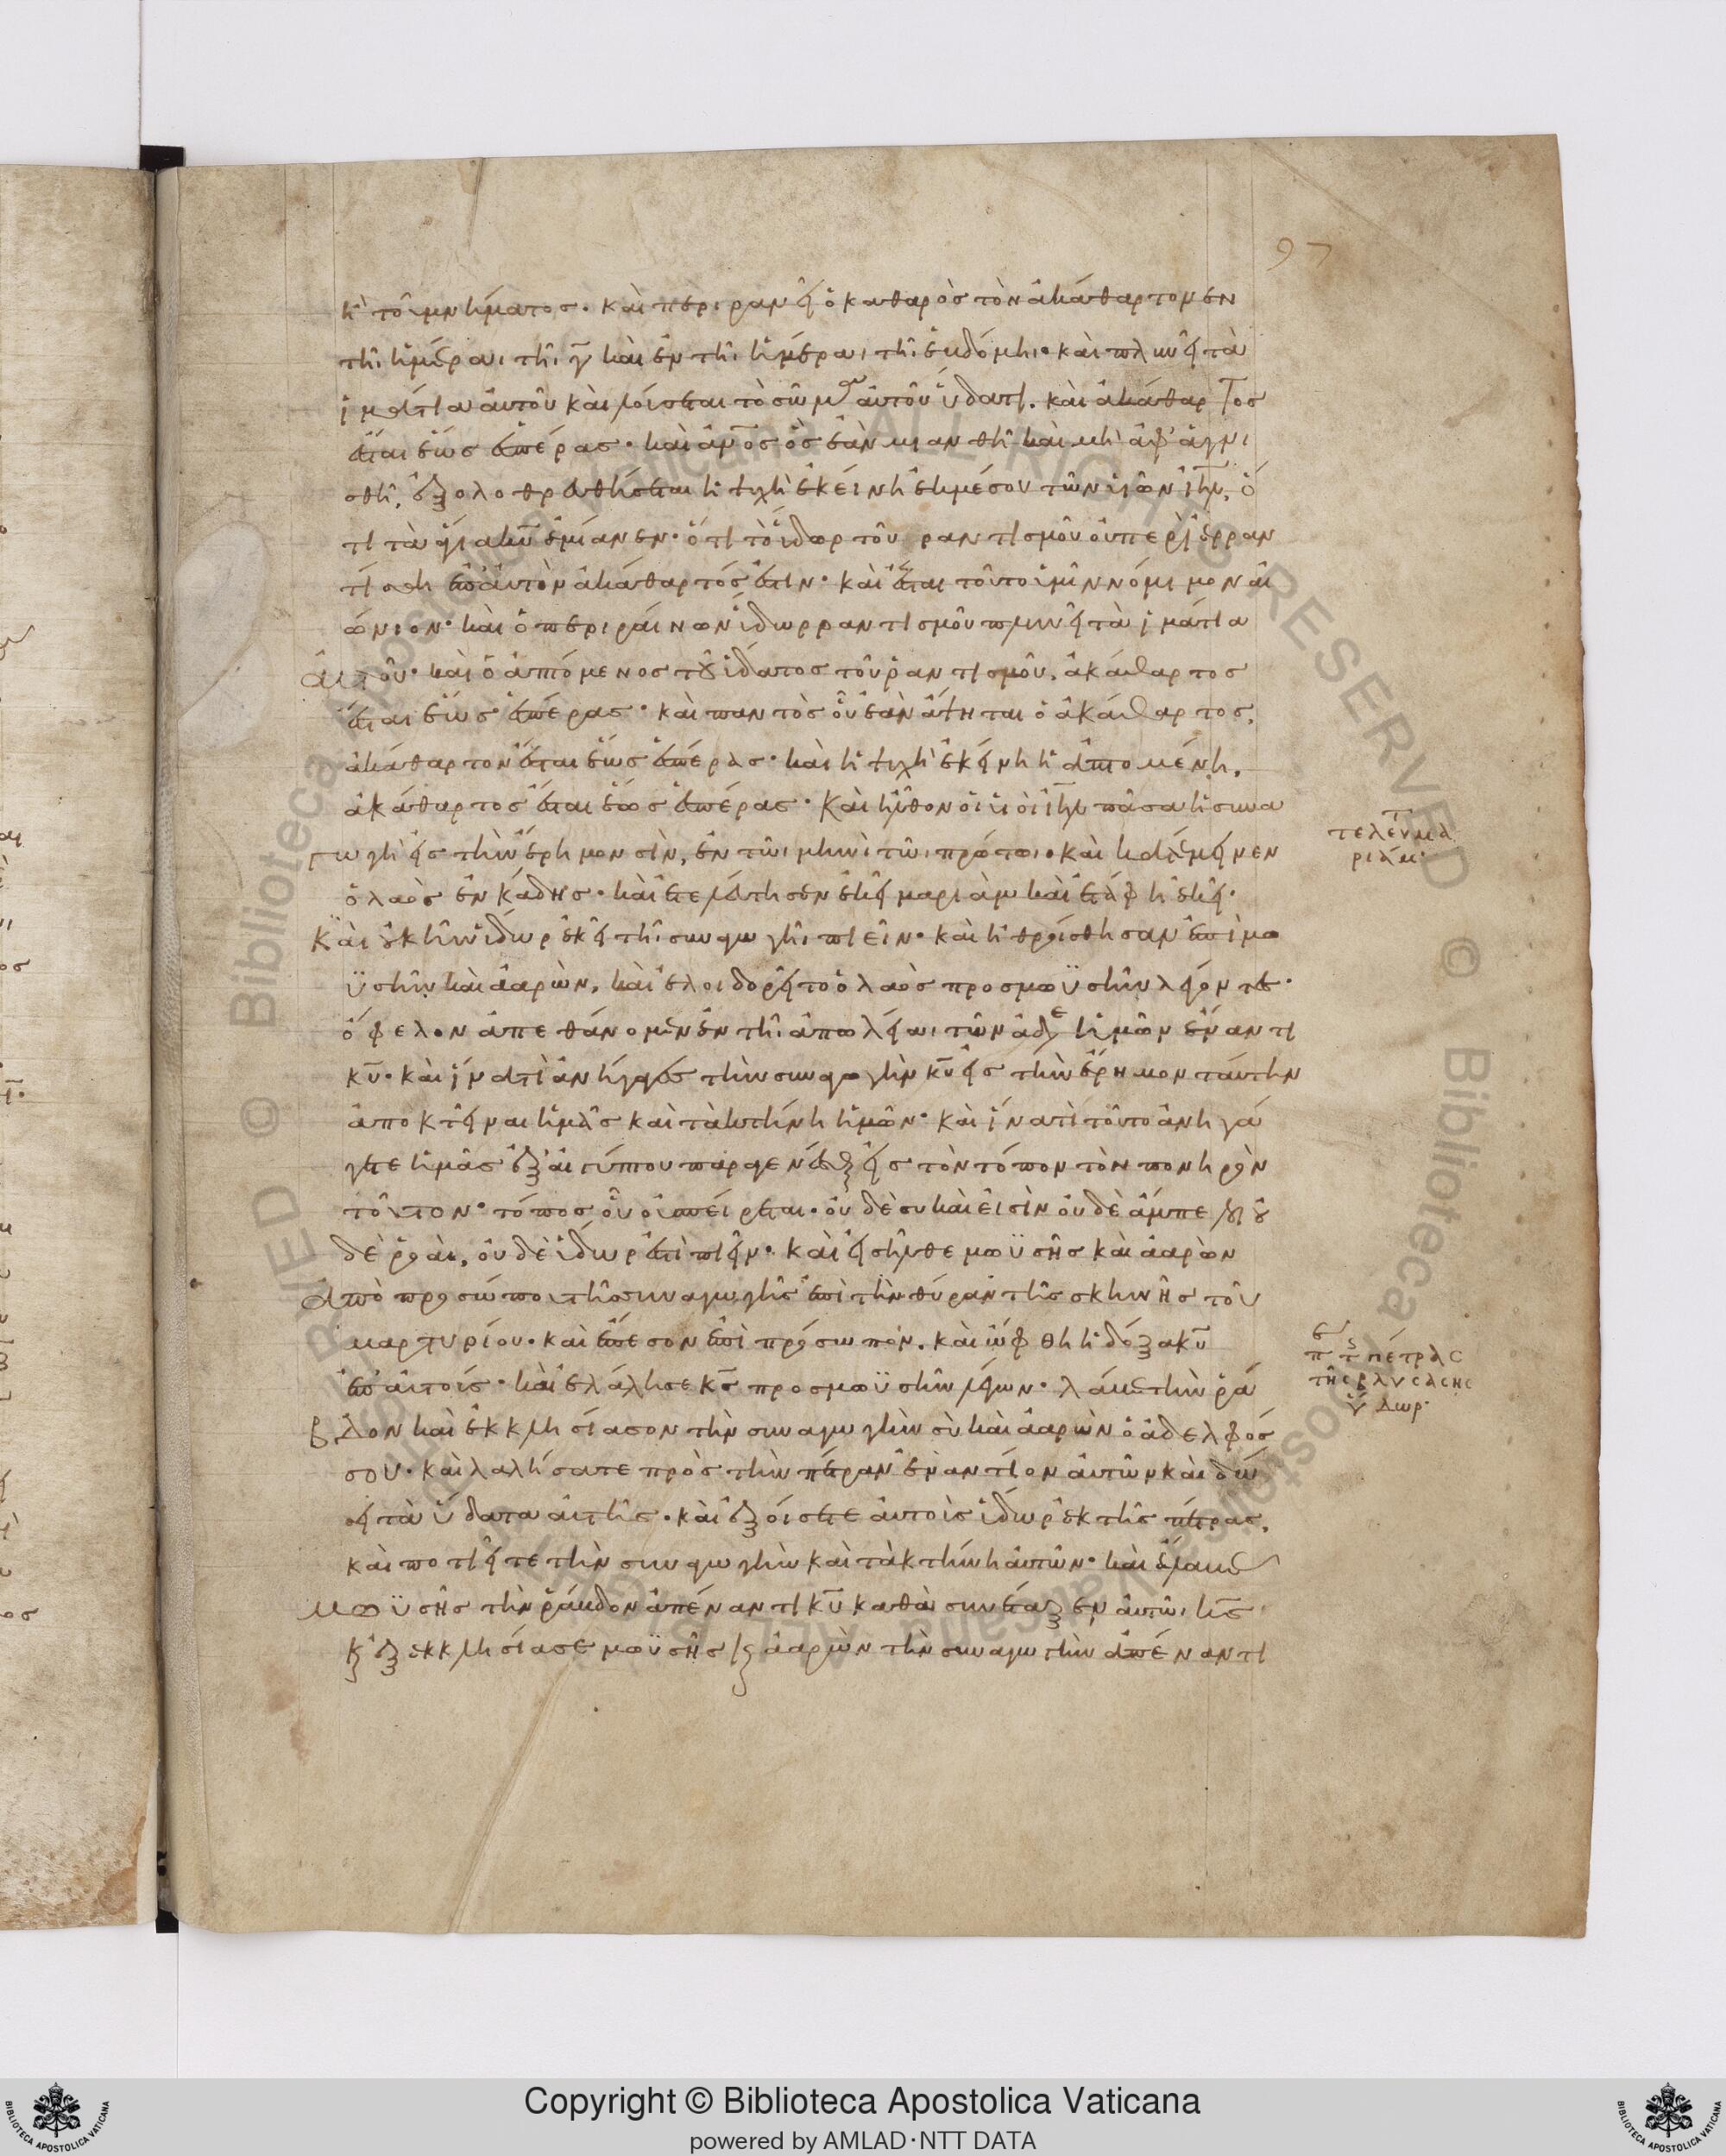 97
ἢ τοῦ μνήματος· καὶ περιρανεῖ ὁ καθαρὸς τὸν ἀκάθαρτον ἐν
τῆι ἡμέραι τῆι γ̄ καὶ ἐν τῆι ἡμέραι τῆι ἑβδόμηι· καὶ πλυνεῖ τὰ
ἱμάτια αὐτοῦ καὶ λούσεται τὸ σῶμα αὐτοῦ ὕδατι. καὶ ἀκάθαρτος
ἔσται ἕως ἑσπέρας· καὶ ἄν̅ος ὃς ἐὰν μιανθῆ καὶ μὴ ἀφαγνι
σθῆ, ἐξολοθρευθήσεται ἡ ψυχὴ ἐκείνη ἐκ μέσου τῶν υἱῶν ιη̅λ, ὅ
τι τὰ ἅγια κυ̅ ἐμίανεν· ὅτι τὸ ὕδωρ τοῦ ραντισμοῦ οὐ περιερραν
τίσθη ἐπ' αὐτὸν ἀκάθαρτός ἐστιν· καὶ ἔσται τοῦτο ὑμῖν νόμιμον αἰ
ώνιον· καὶ ὁ περιραίνων ὕδωρ ραντισμοῦ πλυνεῖ τὰ ἱμάτια
αὐτοῦ· καὶ ὁ ἁπτόμενος τοῦ ὕδατος τοῦ ῥαντισμοῦ, ἀκάθαρτος
ἔσται ἕως ἑσπέρας· καὶ παντὸς οὗ ἐὰν ἅψηται ὁ ἀκάθαρτος,
ἀκάθαρτον ἔσται ἕως ἑσπέρας· καὶ ἡ ψυχὴ ἐκείνη ἡ ἁπτομένη,
ἀκάθαρτος ἔσται ἕως ἑσπέρας· Καὶ ἦλθον οἱ υἱοὶ ιη̅λ πᾶσα ἡ συνα
γωγὴ εἰς τὴν ἔρημον σίν, ἐν τῶι μηνὶ τῶι πρώτωι· καὶ κατέμεινεν
ὁ λαὸς ἐν κάδης· καὶ ἐτελεύτησεν ἐκεῖ μαριὰμ καὶ ἐτάφη ἐκεῖ·
Καὶ οὐκ ἦν ὕδωρ ἐκεῖ τῆ συναγωγῆι πιεῖν· καὶ ἠθροίσθησαν ἐπὶ μω
ϋσῆν καὶ ἀαρών, καὶ ἐλοιδορεῖτο ὁ λαὸς προς μωϋσῆν λέγοντες·
ὄφελον ἀπεθάνομεν ἐν τῆι ἀπωλείαι τῶν ἀδε ἡμῶν ἔναντι
κυ̅· καὶ ἱνατί ἀνηγάγετε τὴν συναγωγὴν κυ̅ εἰς τὴν ἔρημον ταύτην
ἀποκτεῖναι ἡμᾶς καὶ τὰ κτήνη ἡμῶν· καὶ ἱνατί τοῦτο ἀνηγά
γετε ἡμᾶς ἐξ αἰγύπτου παραγενέσθαι εἰς τὸν τόπον τὸν πονηρὸν
τοῦτον· τόπος οὗ οὐ σπείρεται· οὐδὲ συκαῖ εἰσὶν οὐδὲ ἄμπελοι οὐ
δὲ ῥόαι, οὐδὲ ὕδωρ ἐστὶ πιεῖν· καὶ εἰσῆλθε μωϋσῆς καὶ ἀαρὼν
ἀπὸ προσώπου τῆς συναγωγῆς ἐπὶ τὴν θύραν τῆς σκηνῆς τοῦ
μαρτυρίου· καὶ ἔπεσον ἐπὶ πρόσωπον. καὶ ὤφθη ἡ δόξα κυ̅
ἐπ' αὐτοὺς· καὶ ἐλάλησε κς̅ προς μωϋσῆν λέγων· λάβε τὴν ῥά
βδον καὶ ἐκκλησίασον τὴν συναγωγὴν σὺ καὶ ἀαρὼν ὁ ἀδελφός
σου· καὶ λαλήσατε πρὸς τὴν πέτραν ἐναντίον αὐτῶν καὶ δώ
σει τὰ ὕδατα αὐτῆς· καὶ ἐξοίσετε αὐτοῖς ὕδωρ ἐκ τῆς πέτρας,
καὶ ποτιεῖτε τὴν συναγωγὴν καὶ τὰ κτήνη αὐτῶν· καὶ ἔλαβε
μωϋσῆς τὴν ῥάβδον ἀπέναντι κυ̅ καθὰ συνέταξεν αὐτῶι κς̅
κ ἐξεκκλησίασε μωϋσῆς κ ἀαρὼν τὴν συναγωγὴν ἀπέναντι
τελευτα
ριάμ·
π τ πέτρας
τῆς βλυσάσης
ὕδωρ·
Copyright © Biblioteca Apostolica Vaticana
powered by AMLAD·NTT DATA